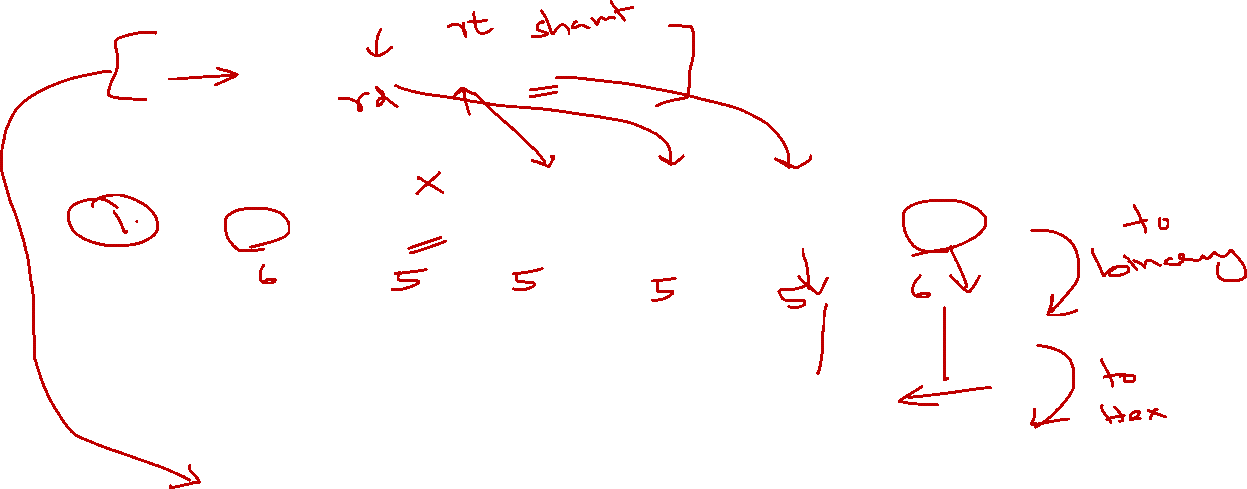 rt shamt
rd =
x
6 5 5 5 5 6
to
binary
to
Hex